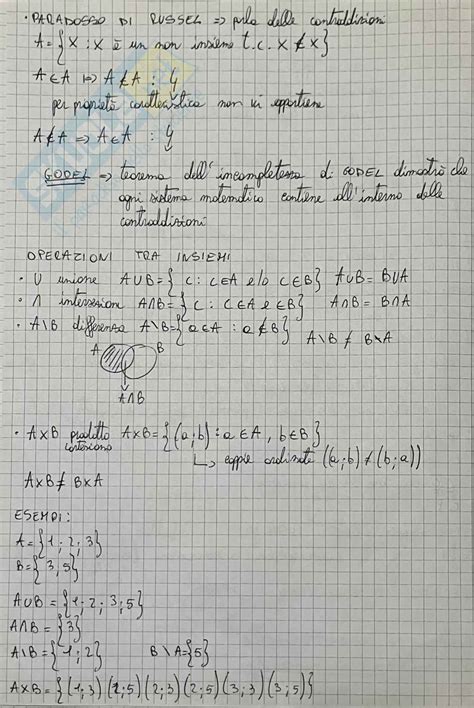 • PARADOSSO DI RUSSEL => parla delle contraddizioni
A = { X : X è un non insieme t.c. X ∉ X }
A ∈ A => A ∉ A :
per proprietà caratteristica non vi appartiene
A ∉ A => A ∈ A :
GODEL => teorema dell'incompletezza di GODEL dimostrò che
ogni sistema matematico contiene all'interno delle
contraddizioni
OPERAZIONI TRA INSIEMI
• U unione A∪B = { c : c∈A e/o c∈B } A∪B = B∪A
• ∩ intersezione A∩B = { c : c∈A e c∈B } A∩B = B∩A
• A\B differenza A\B = { a∈A : a∉B } A\B ≠ B\A
A B
A∩B
• A×B prodotto A×B = { (a;b) : a∈A , b∈B }
cartesiano
↳ coppie ordinate ((a;b) ≠ (b;a))
A×B ≠ B×A
ESEMPI:
A = { 1; 2; 3 }
B = { 3; 5 }
A∪B = { 1; 2; 3; 5 }
A∩B = { 3 }
A\B = { 1; 2 } B\A = { 5 }
A×B = { (1;3) (1;5) (2;3) (2;5) (3;3) (3;5) }